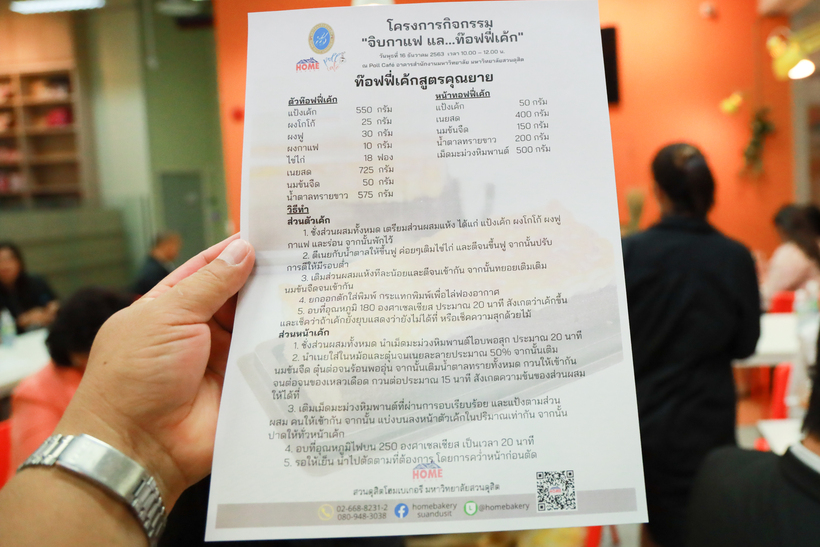 โครงการกิจกรรม
"จิบกาแฟ แล...ท๊อฟฟี่เค้ก"
วันพุธที่ 16 ธันวาคม 2563 เวลา 10.00 – 12.00 น.
ณ Poll Café อาคารสำนักงานมหาวิทยาลัย มหาวิทยาลัยสวนดุสิต
HOME
ท๊อฟฟี่เค้กสูตรคุณยาย
ตัวท๊อฟฟี่เค้ก
แป้งเค้ก 550 กรัม
ผงโกโก้ 25 กรัม
ผงฟู 30 กรัม
ผงกาแฟ 10 กรัม
ไข่ไก่ 18 ฟอง
เนยสด 725 กรัม
นมข้นจืด 50 กรัม
น้ำตาลทรายขาว 575 กรัม
หน้าทอฟฟี่เค้ก
แป้งเค้ก 50 กรัม
เนยสด 400 กรัม
นมข้นจืด 150 กรัม
น้ำตาลทรายขาว 200 กรัม
เม็ดมะม่วงหิมพานต์ 500 กรัม
วิธีทำ
ส่วนตัวเค้ก
1. ชั่งส่วนผสมทั้งหมด เตรียมส่วนผสมแห้ง ได้แก่ แป้งเค้ก ผงโกโก้ ผงฟู
กาแฟ และร่อน จากนั้นพักไว้
2. ตีเนยกับน้ำตาลให้ขึ้นฟู ค่อยๆเติมไข่ไก่ และตีจนขึ้นฟู จากนั้นปรับ
การตีให้มีรอบต่ำ
3. เติมส่วนผสมแห้งทีละน้อยและตีจนเข้ากัน จากนั้นทยอยเติมเติม
นมข้นจืดจนเข้ากัน
4. ยกออกตักใส่พิมพ์ กระแทกพิมพ์เพื่อไล่ฟองอากาศ
5. อบที่อุณหภูมิ 180 องศาเซลเซียส ประมาณ 20 นาที สังเกตว่าเค้กขึ้น
และเช็คว่าถ้าเค้กยังยุบแสดงว่ายังไม่ได้ที่ หรือเช็คความสุกด้วยไม้
ส่วนหน้าเค้ก
1. ชั่งส่วนผสมทั้งหมด นำเม็ดมะม่วงหิมพานต์ไอบอพอสุก ประมาณ 20 นาที
2. นำเนยใส่ในหม้อและตุ๋นจนเนยละลายประมาณ 50% จากนั้นเติม
นมข้นจืด ตุ๋นต่อจนร้อนพออุ่น จากนั้นเติมน้ำตาลทรายทั้งหมด กวนให้เข้ากัน
จนต่อจนของเหลวเดือด กวนต่อประมาณ 15 นาที สังเกตความข้นของส่วนผสม
ให้ได้ที่
3. เติมเม็ดมะม่วงหิมพานต์ที่ผ่านการอบเรียบร้อย และแป้งตามส่วน
ผสม คนให้เข้ากัน จากนั้น แบ่งบนลงหน้าตัวเค้กในปริมาณเท่ากัน จากนั้น
ปาดให้ทั่วหน้าเค้ก
4. อบที่อุณหภูมิไฟบน 250 องศาเซลเซียส เป็นเวลา 20 นาที
5. รอให้เย็น นำไปตัดตามที่ต้องการ โดยการคว่ำหน้าก่อนตัด
HOME
สวนดุสิตโฮมเบเกอรี่ มหาวิทยาลัยสวนดุสิต
02-668-8231-2
080-948-3038
homebakery
suandusit
@homebakery